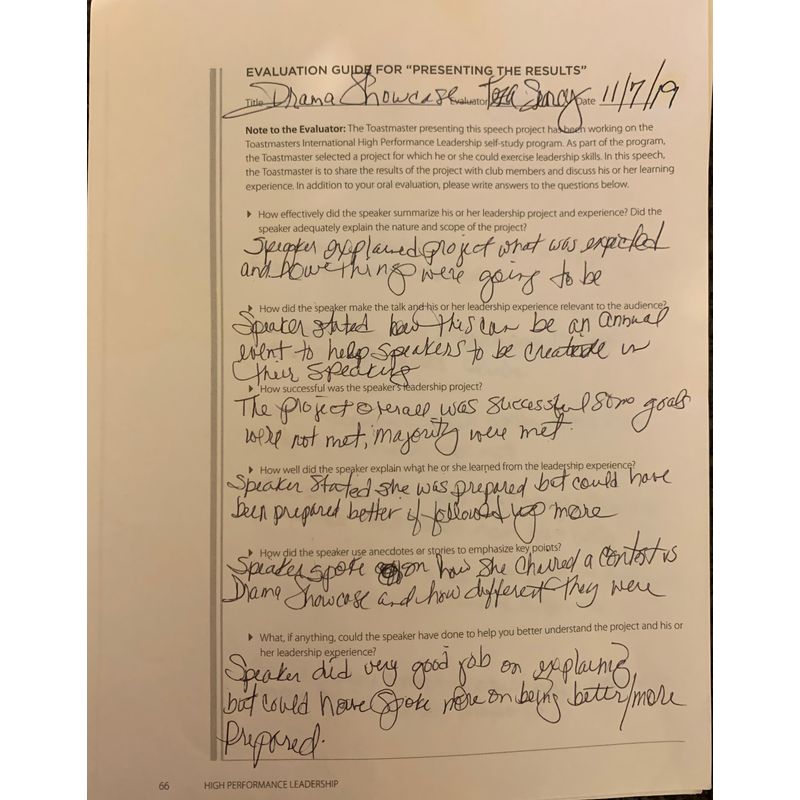 EVALUATION GUIDE FOR "PRESENTING THE RESULTS"
Title Drama Showcase Evaluator Date 11/7/19
Note to the Evaluator: The Toastmaster presenting this speech project has been working on the
Toastmasters International High Performance Leadership self-study program. As part of the program,
the Toastmaster selected a project for which he or she could exercise leadership skills. In this speech,
the Toastmaster is to share the results of the project with club members and discuss his or her learning
experience. In addition to your oral evaluation, please write answers to the questions below.
How effectively did the speaker summarize his or her leadership project and experience? Did the
speaker adequately explain the nature and scope of the project?
Speaker explained project what was expected
and how things were going to be
How did the speaker make the talk and his or her leadership experience relevant to the audience?
Speaker stated how this can be an annual
event to help speakers to be in
their speaking
How successful was the speaker's leadership project?
The project overall was successful some goals
were not met, majority were met.
How well did the speaker explain what he or she learned from the leadership experience?
Speaker stated she was prepared but could have
been prepared better if followed up more
How did the speaker use anecdotes or stories to emphasize key points?
Speaker spoke on how she chaired a contest vs
Drama Showcase and how different they were
What, if anything, could the speaker have done to help you better understand the project and his or
her leadership experience?
Speaker did very good job on explaining
but could have spoke more on being better/more
prepared.
66 HIGH PERFORMANCE LEADERSHIP